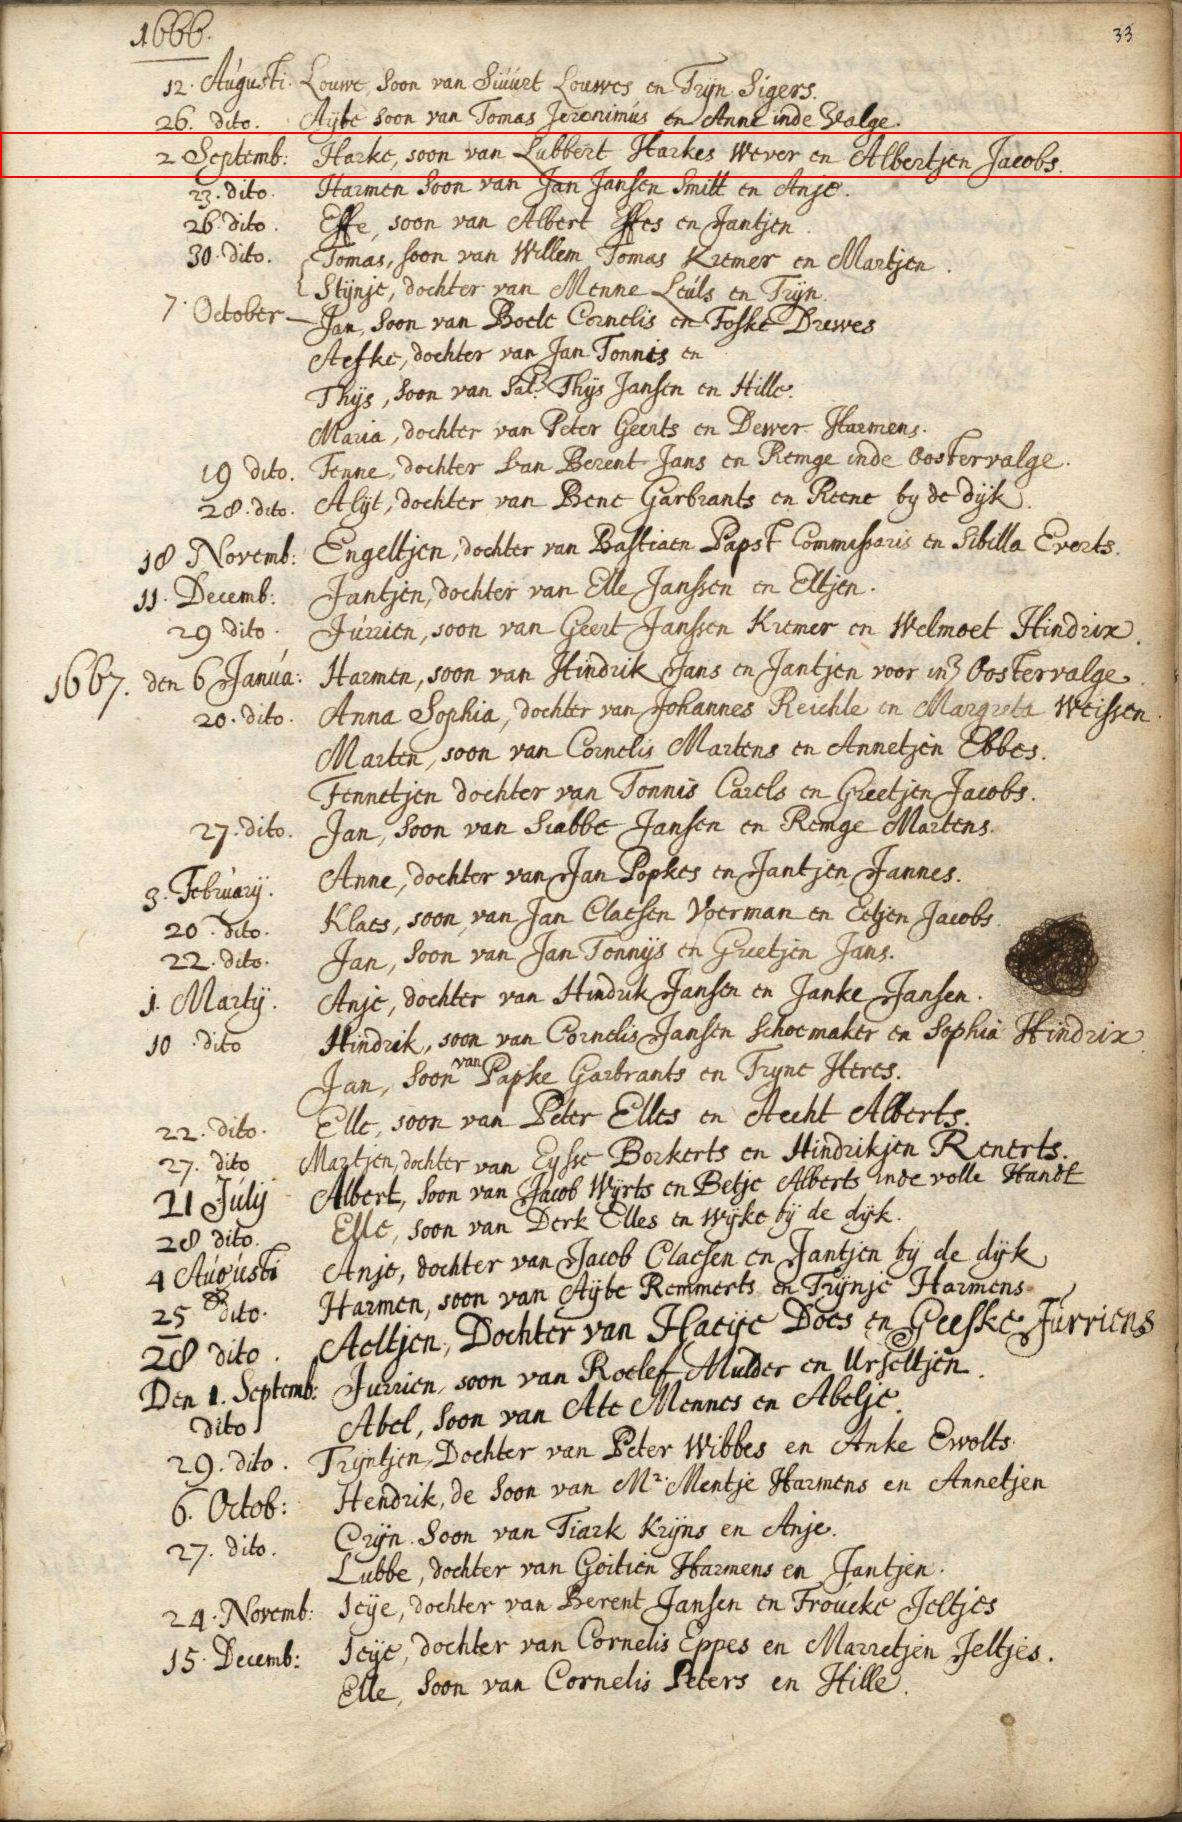 1666.
33
12. Augusti. Louwe, soon van Siúúrt Louwes en Trijn Sigers.
26. dito. Aijbe soon van Tomas Jeronimús en Anne inde Valge.
2 Septemb: Harke, soon van Lubbert Harkes Wever en Albertjen Jacobs.
23. dito. Harmen soon van Jan Jansen Smitt en Anje.
26. dito. Effe, soon van Albert Effes en Jantjen.
30. dito. Tomas, soon van Willem Tomas Kremer en Martjen.
Stijnje, dochter van Menne Leúls en Trijn.
7. October Jan, soon van Boele Cornelis en Foske Drewes
Aefke, dochter van Jan Tonnis en
Thijs, soon van Sal. Thijs Jansen en Hille.
Maria, dochter van Peter Geerts en Dewer Harmens.
19 dito. Tenne, dochter van Berent Jans en Remge inde Oostervalge.
28. dito. Alijt, dochter van Bene Garbrants en Reene by de dijk.
18 Novemb: Engeltjen, dochter van Bastiaen Papst Commissaris en Sibilla Everts.
11. Decemb: Jantjen, dochter van Elle Janssen en Eltjen.
29 dito. Júrrien, soon van Geert Janssen Kremer en Welmoet Hindrix.
1667. den 6 Janúa: Harmen, soon van Hindrik Jans en Jantjen voor in Oostervalge.
20. dito. Anna Sophia, dochter van Johannes Reichle en Margreta Weissen.
Marten, soon van Cornelis Martens en Annetjen Ebbes.
Fennetjen dochter van Tonnis Carels en Greetjen Jacobs.
27. dito. Jan, soon van Siabbe Jansen en Remge Martens.
3. Februarij. Anne, dochter van Jan Popkes en Jantjen Jannes.
20. dito. Klaes, soon van Jan Claesen Voerman en Eetjen Jacobs.
22. dito. Jan, soon van Jan Tonnijs en Greetjen Jans.
1. Martij. Anje, dochter van Hindrik Jansen en Janke Jansen.
10 dito Hindrik, soon van Cornelis Jansen Schoemaker en Sophia Hindrix
Jan, soon van Papke Garbrants en Tryne Heres.
22. dito. Elle, soon van Peter Elles en Aecht Alberts.
27. dito Martjen, dochter van Eysse Borkerts en Hindrikjen Renerts.
21 Júlij Albert, soon van Jacob Wijrts en Betje Alberts inde volle Handt
28 dito. Elle, soon van Derk Elles en Wijke bij de dijk.
4 Augústi Anje, dochter van Jacob Claesen en Jantjen bij de dijk
25 dito. Harmen, soon van Aijbe Remmerts en Trijnje Harmens
28 dito. Aeltjen, Dochter van Haeije Does en Geeske Júrriens
Den 1. Septemb: Jurrien, soon van Roelef Mulder en Urseltjen.
dito Abel, soon van Ate Mennes en Abelje.
29. dito. Trijntjen, Dochter van Peter Wibbes en Anke Ewolts.
6. Octob: Hendrik, de soon van Mr. Mentje Harmens en Annetjen
27. dito. Crijn soon van Tiark Krijns en Anje.
Lubbe, dochter van Goitien Harmens en Jantjen.
24. Novemb: Icije, dochter van Berent Jansen en Froúcke Jeltjes
15. Decemb: Icije, dochter van Cornelis Eppes en Marretjen Jeltjes.
Elle, soon van Cornelis Peters en Hille.